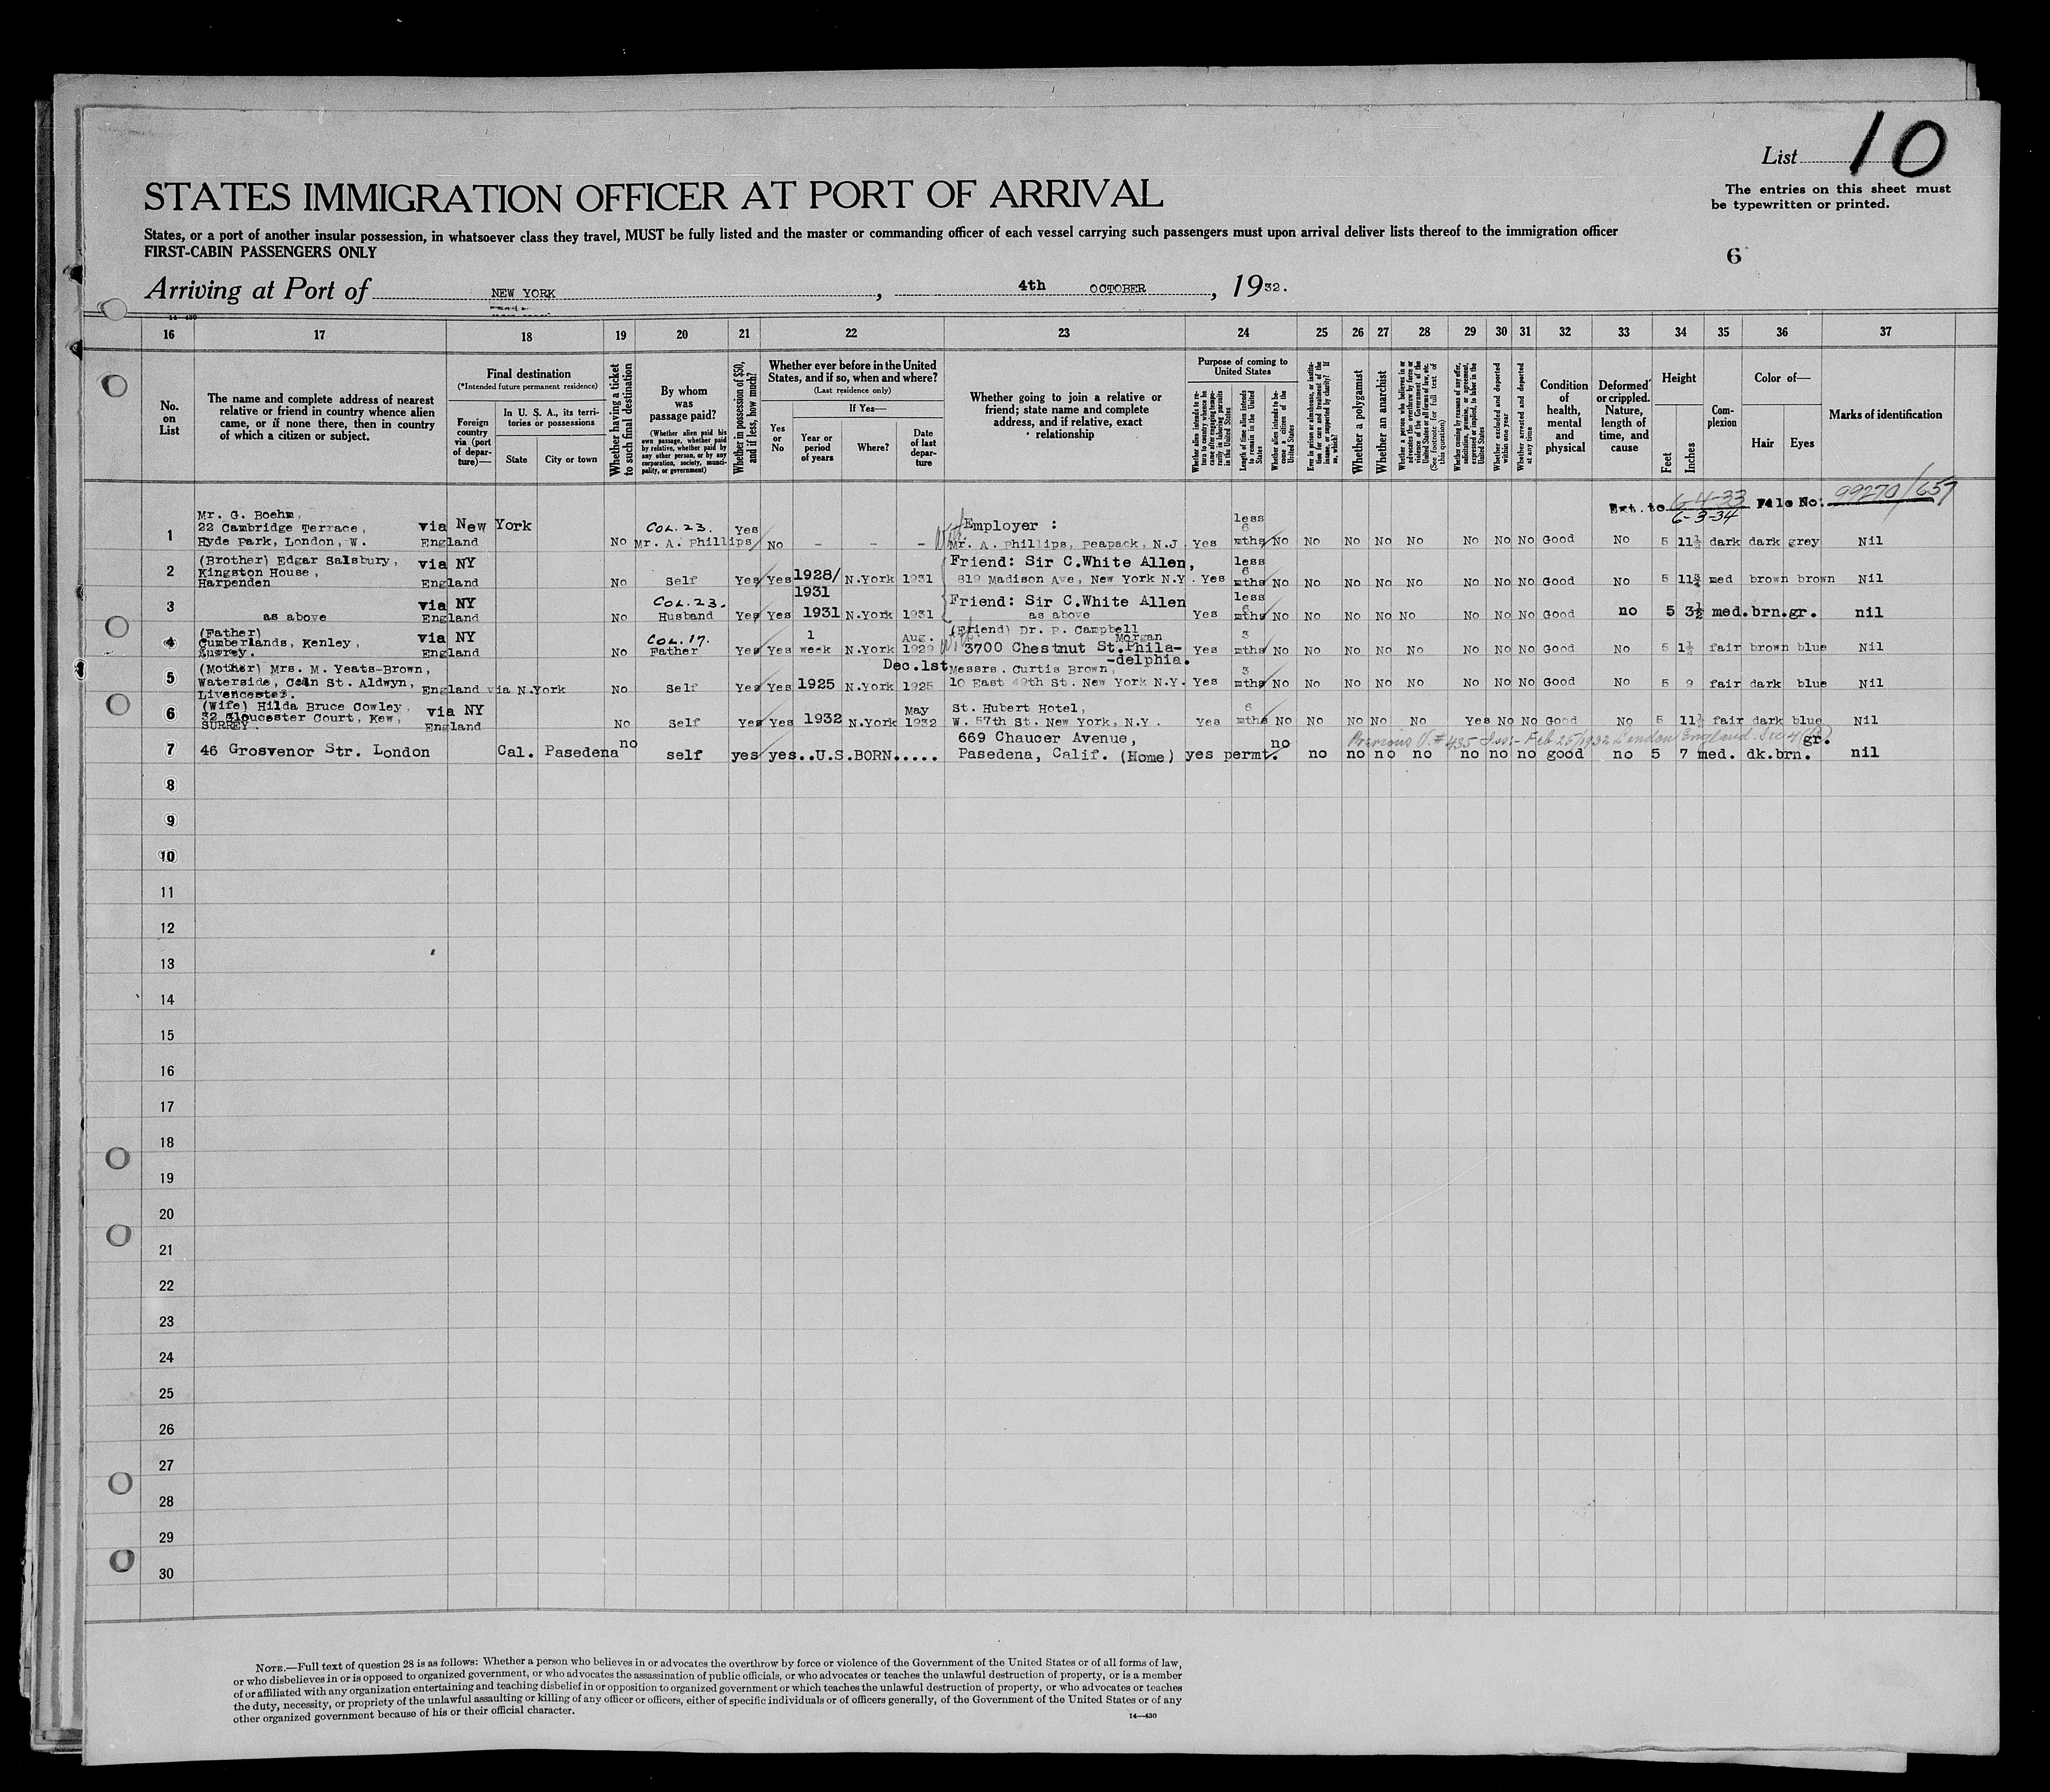 List 10
STATES IMMIGRATION OFFICER AT PORT OF ARRIVAL
The entries on this sheet must
be typewritten or printed.
States, or a port of another insular possession, in whatsoever class they travel, MUST be fully listed and the master or commanding officer of each vessel carrying such passengers must upon arrival deliver lists thereof to the immigration officer
FIRST-CABIN PASSENGERS ONLY
6
Arriving at Port of NEW YORK, 4th OCTOBER, 1932.
14—430
16 17 18 19 20 21 22 23 24 25 26 27 28 29 30 31 32 33 34 35 36 37
No. on List
The name and complete address of nearest relative or friend in country whence alien came, or if none there, then in country of which a citizen or subject.
Final destination
(*Intended future permanent residence)
Foreign country via (port of departure)—
In U. S. A., its territories or possessions
State
City or town
Whether having a ticket to such final destination
By whom was passage paid?
(Whether alien paid his own passage, whether paid by relative, whether paid by any other person, or by any corporation, society, municipality, or government)
Whether in possession of $50, and if less, how much?
Whether ever before in the United States, and if so, when and where?
(Last residence only)
Yes or No
If Yes—
Year or period of years
Where?
Date of last departure
Whether going to join a relative or friend; state name and complete address, and if relative, exact relationship
Purpose of coming to United States
Whether alien intends to return to country whence he came after engaging temporarily in laboring pursuits in the United States
Length of time alien intends to remain in the United States
Whether alien intends to become a citizen of the United States
Ever in prison or almshouse, or institution for care and treatment of the insane, or supported by charity? If so, which?
Whether a polygamist
Whether an anarchist
Whether a person who believes in or advocates the overthrow by force or violence of the Government of the United States or all forms of law, etc. (See footnote for full text of this question)
Whether coming by reason of any offer, solicitation, promise, or agreement, expressed or implied, to labor in the United States
Whether excluded and deported within one year
Whether arrested and deported at any time
Condition of health, mental and physical
Deformed or crippled. Nature, length of time, and cause
Height
Feet
Inches
Complexion
Color of—
Hair
Eyes
Marks of identification
Ext. to 6-4-33 File No. 99270/657
6-3-34
1 Mr. G. Boehm, 22 Cambridge Terrace, Hyde Park, London, W. via New York England No COL. 23. Mr. A. Phillips Yes No - - - With Employer : Mr. A. Phillips, Peapack, N.J. Yes less 6 mths No No No No No No No No Good No 5 11½ dark dark grey Nil
2 (Brother) Edgar Salsbury, Kingston House, Harpenden via NY England No Self Yes Yes 1928/1931 N.York 1931 Friend: Sir C.White Allen, 819 Madison Ave, New York N.Y. Yes less 6 mths No No No No No No No No Good No 5 11¾ med brown brown Nil
3 as above via NY England No COL. 23. Husband Yes Yes 1931 N.York 1931 Friend: Sir C.White Allen as above Yes less 6 mths No No No No No No No No Good no 5 3½ med. brn. gr. nil
4 (Father) Cumberlands, Kenley, Surrey. via NY England No COL. 17. Father Yes Yes 1 week N.York Aug. 1929 With (Friend) Dr. P. Campbell Morgan 3700 Chestnut St. Phila-delphia. Yes 3 mths No No No No No No No No Good No 5 1½ fair brown blue Nil
5 (Mother) Mrs. M. Yeats-Brown, Waterside, Coln St. Aldwyn, England via N.York No Self Yes Yes 1925 N.York Dec.1st 1925 Messrs. Curtis Brown, 10 East 49th St. New York N.Y. Yes 3 mths No No No No No No No No Good No 5 9 fair dark blue Nil
6 (Wife) Hilda Bruce Cowley, 32 Gloucester Court, Kew, SURREY. via NY England No Self Yes Yes 1932 N.York May 1932 St. Hubert Hotel, W. 57th St. New York, N.Y. Yes 6 mths No No No No No Yes No No Good No 5 11½ fair dark blue Nil
Previous V. # 435 Iss:- Feb 25/1932 London England
7 46 Grosvenor Str. London Cal. Pasedena no self yes yes..U.S.BORN..... 669 Chaucer Avenue, Pasedena, Calif. (Home) yes permt. no no no no no no no no good no 5 7 med. dk.brn. gr. nil
8
9
10
11
12
13
14
15
16
17
18
19
20
21
22
23
24
25
26
27
28
29
30
NOTE.—Full text of question 28 is as follows: Whether a person who believes in or advocates the overthrow by force or violence of the Government of the United States or of all forms of law,
or who disbelieves in or is opposed to organized government, or who advocates the assassination of public officials, or who advocates or teaches the unlawful destruction of property, or is a member
of or affiliated with any organization entertaining and teaching disbelief in or opposition to organized government or which teaches the unlawful destruction of property, or who advocates or teaches
the duty, necessity, or propriety of the unlawful assaulting or killing of any officer or officers, either of specific individuals or of officers generally, of the Government of the United States or of any
other organized government because of his or their official character.
14—430